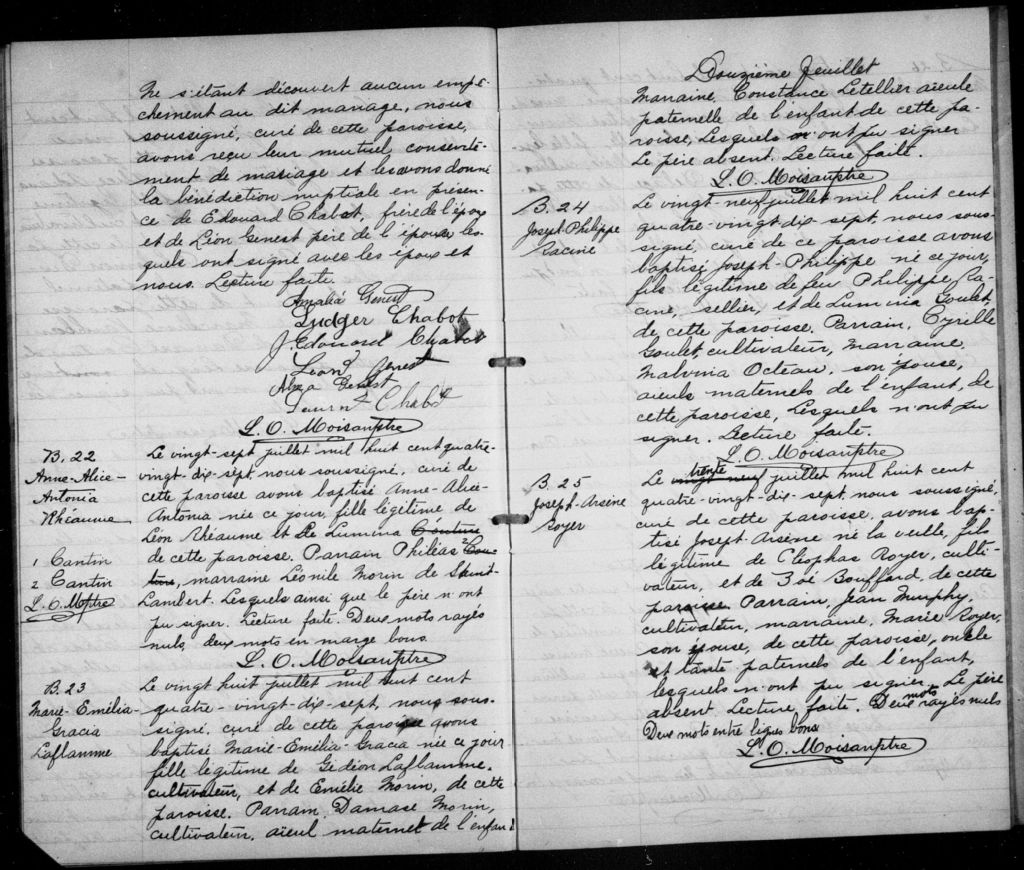 Ne s'étant découvert aucun empê-
chement au dit mariage, nous
soussigné, curé de cette paroisse,
avons reçu leur mutuel consente-
ment de mariage et les avons donné
la bénédiction nuptiale en présen-
ce de Edouard Chabot, frère de l'époux
et de Léon Genest père de l'épouse les-
quels ont signé avec les époux et
nous. Lecture faite.
Amalia Genest
Ludger Chabot
J. Edouard Chabot
Léon Genest
Alza Genest
Chabot
L. O. Moisan ptre
B. 22
Anne-Alice-
Antonia
Rhéaume
1 Cantin
2 Cantin
L. O. M ptre
Le vingt-sept juillet mil huit cent quatre-
vingt-dix-sept, nous soussigné, curé de
cette paroisse avons baptisé Anne-Alice-
Antonia née ce jour, fille légitime de
Léon Rhéaume et de Lumina Couture
de cette paroisse. Parrain Philéas 2 Cou-
ture, marraine Léonile Morin de Saint-
Lambert. Lesquels ainsi que le père n'ont
pu signer. Lecture faite. Deux mots rayés
nuls, deux mots en marge bons.
L. O. Moisan ptre
B. 23
Marie-Emélia-
Gracia
Laflamme
Le vingt huit juillet mil huit cent
quatre-vingt-dix-sept, nous sous-
signé, curé de cette paroisse avons
baptisé Marie-Emélia-Gracia née ce jour
fille légitime de Gédéon Laflamme,
cultivateur, et de Emélie Morin, de cette
paroisse. Parrain, Damase Morin,
cultivateur, aïeul maternel de l'enfant
Douzième feuillet
Marraine, Constance Letellier aïeule
paternelle de l'enfant de cette pa-
roisse, Lesquels n'ont pu signer
Le père absent. Lecture faite.
L. O. Moisan ptre
B. 24
Joseph-Philippe
Racine
Le vingt-neuf juillet mil huit cent
quatre-vingt-dix-sept, nous sous-
signé, curé de ce paroisse avons
baptisé Joseph-Philippe né ce jour,
fils légitime de feu Philippe Ra-
cine, sellier, et de Luminia Goulet,
de cette paroisse. Parrain, Cyrille
Goulet, cultivateur, Marraine,
Malvina Octeau, son épouse,
aïeuls maternels de l'enfant, de
cette paroisse, Lesquels n'ont pu
signer. Lecture faite.
L. O. Moisan ptre
B. 25
Joseph-Arsène
Royer
trente
Le vingt neuf juillet mil huit cent
quatre-vingt-dix-sept, nous soussigné,
curé de cette paroisse, avons bap-
tisé Josept-Arsène né la veille, fils
légitime de Cléophas Royer, culti-
vateur, et de Zoé Bouffard, de cette
paroisse. Parrain, Jean Murphy,
cultivateur, marraine, Marie Royer,
son épouse, de cette paroisse, oncle
et tante paternels de l'enfant,
lesquels n'ont pu signer. Le père
absent. Lecture faite. Deux mots rayés nuls
Deux mots entre lignes bons
L. O. Moisan ptre